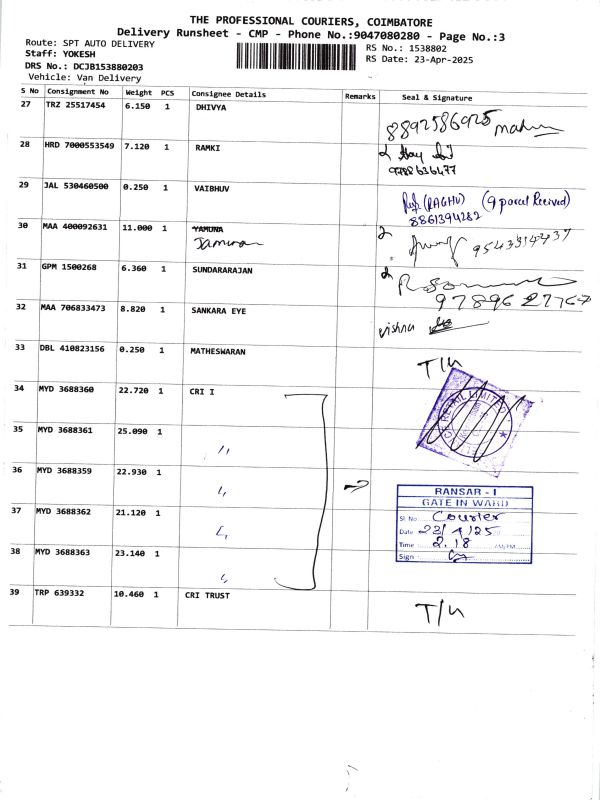 THE PROFESSIONAL COURIERS, COIMBATORE
Delivery Runsheet - CMP - Phone No.:9047080280 - Page No.:3
Route: SPT AUTO DELIVERY
Staff: YOKESH
DRS No.: DCJB153880203
Vehicle: Van Delivery
RS No.: 1538802
RS Date: 23-Apr-2025
S No Consignment No Weight PCS Consignee Details Remarks Seal & Signature
27 TRZ 25517454 6.150 1 DHIVYA
8892586925
28 HRD 7000553549 7.120 1 RAMKI
9788636477
29 JAL 530460500 0.250 1 VAIBHUV
(RAGHU) (9 parcel Received)
8861394282
30 MAA 400092631 11.000 1 YAMUNA
31 GPM 1500268 6.360 1 SUNDARARAJAN
32 MAA 706833473 8.820 1 SANKARA EYE
vishnu
33 DBL 410823156 0.250 1 MATHESWARAN
34 MYD 3688360 22.720 1 CRI I
RETAIL LIMITED
35 MYD 3688361 25.090 1 ,,
36 MYD 3688359 22.930 1 ,,
37 MYD 3688362 21.120 1 ,,
38 MYD 3688363 23.140 1 ,,
RANSAR - I
GATE IN WARD
Sl. No. Courier
Date 23/4/25
Time 2.18 AM/PM
Sign
39 TRP 639332 10.460 1 CRI TRUST